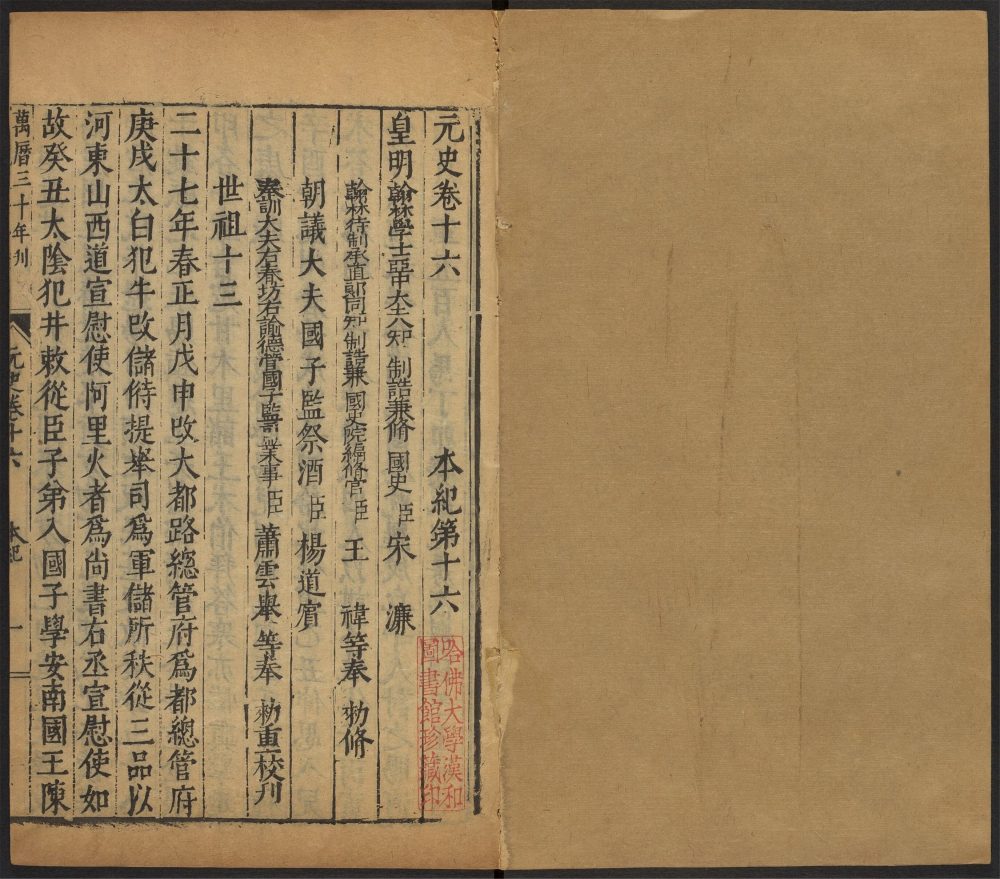 元史卷十六 本紀第十六
皇明翰林學士亞中大夫知 制誥兼脩 國史臣宋 濂
翰林待制承直郎同知 制誥兼 國史院編脩官臣王 禕等奉 勅脩
朝議大夫國子監祭酒臣楊道賓
奉訓大夫右春坊右諭德管國子監司業事臣蕭雲舉等奉 勅重校刋
世祖十三
二十七年春正月戊申改大都路緫管府爲都緫管府
庚戌太白犯牛改儲偫提舉司爲軍儲所秩從三品以
河東山西道宣慰使阿里火者爲尚書右丞宣慰使如
故癸丑太陰犯井敕從臣子弟入國子學安南國王陳
萬曆三十年刋
元史卷十六 本紀 一
哈佛大學漢和
圖書館珍藏印